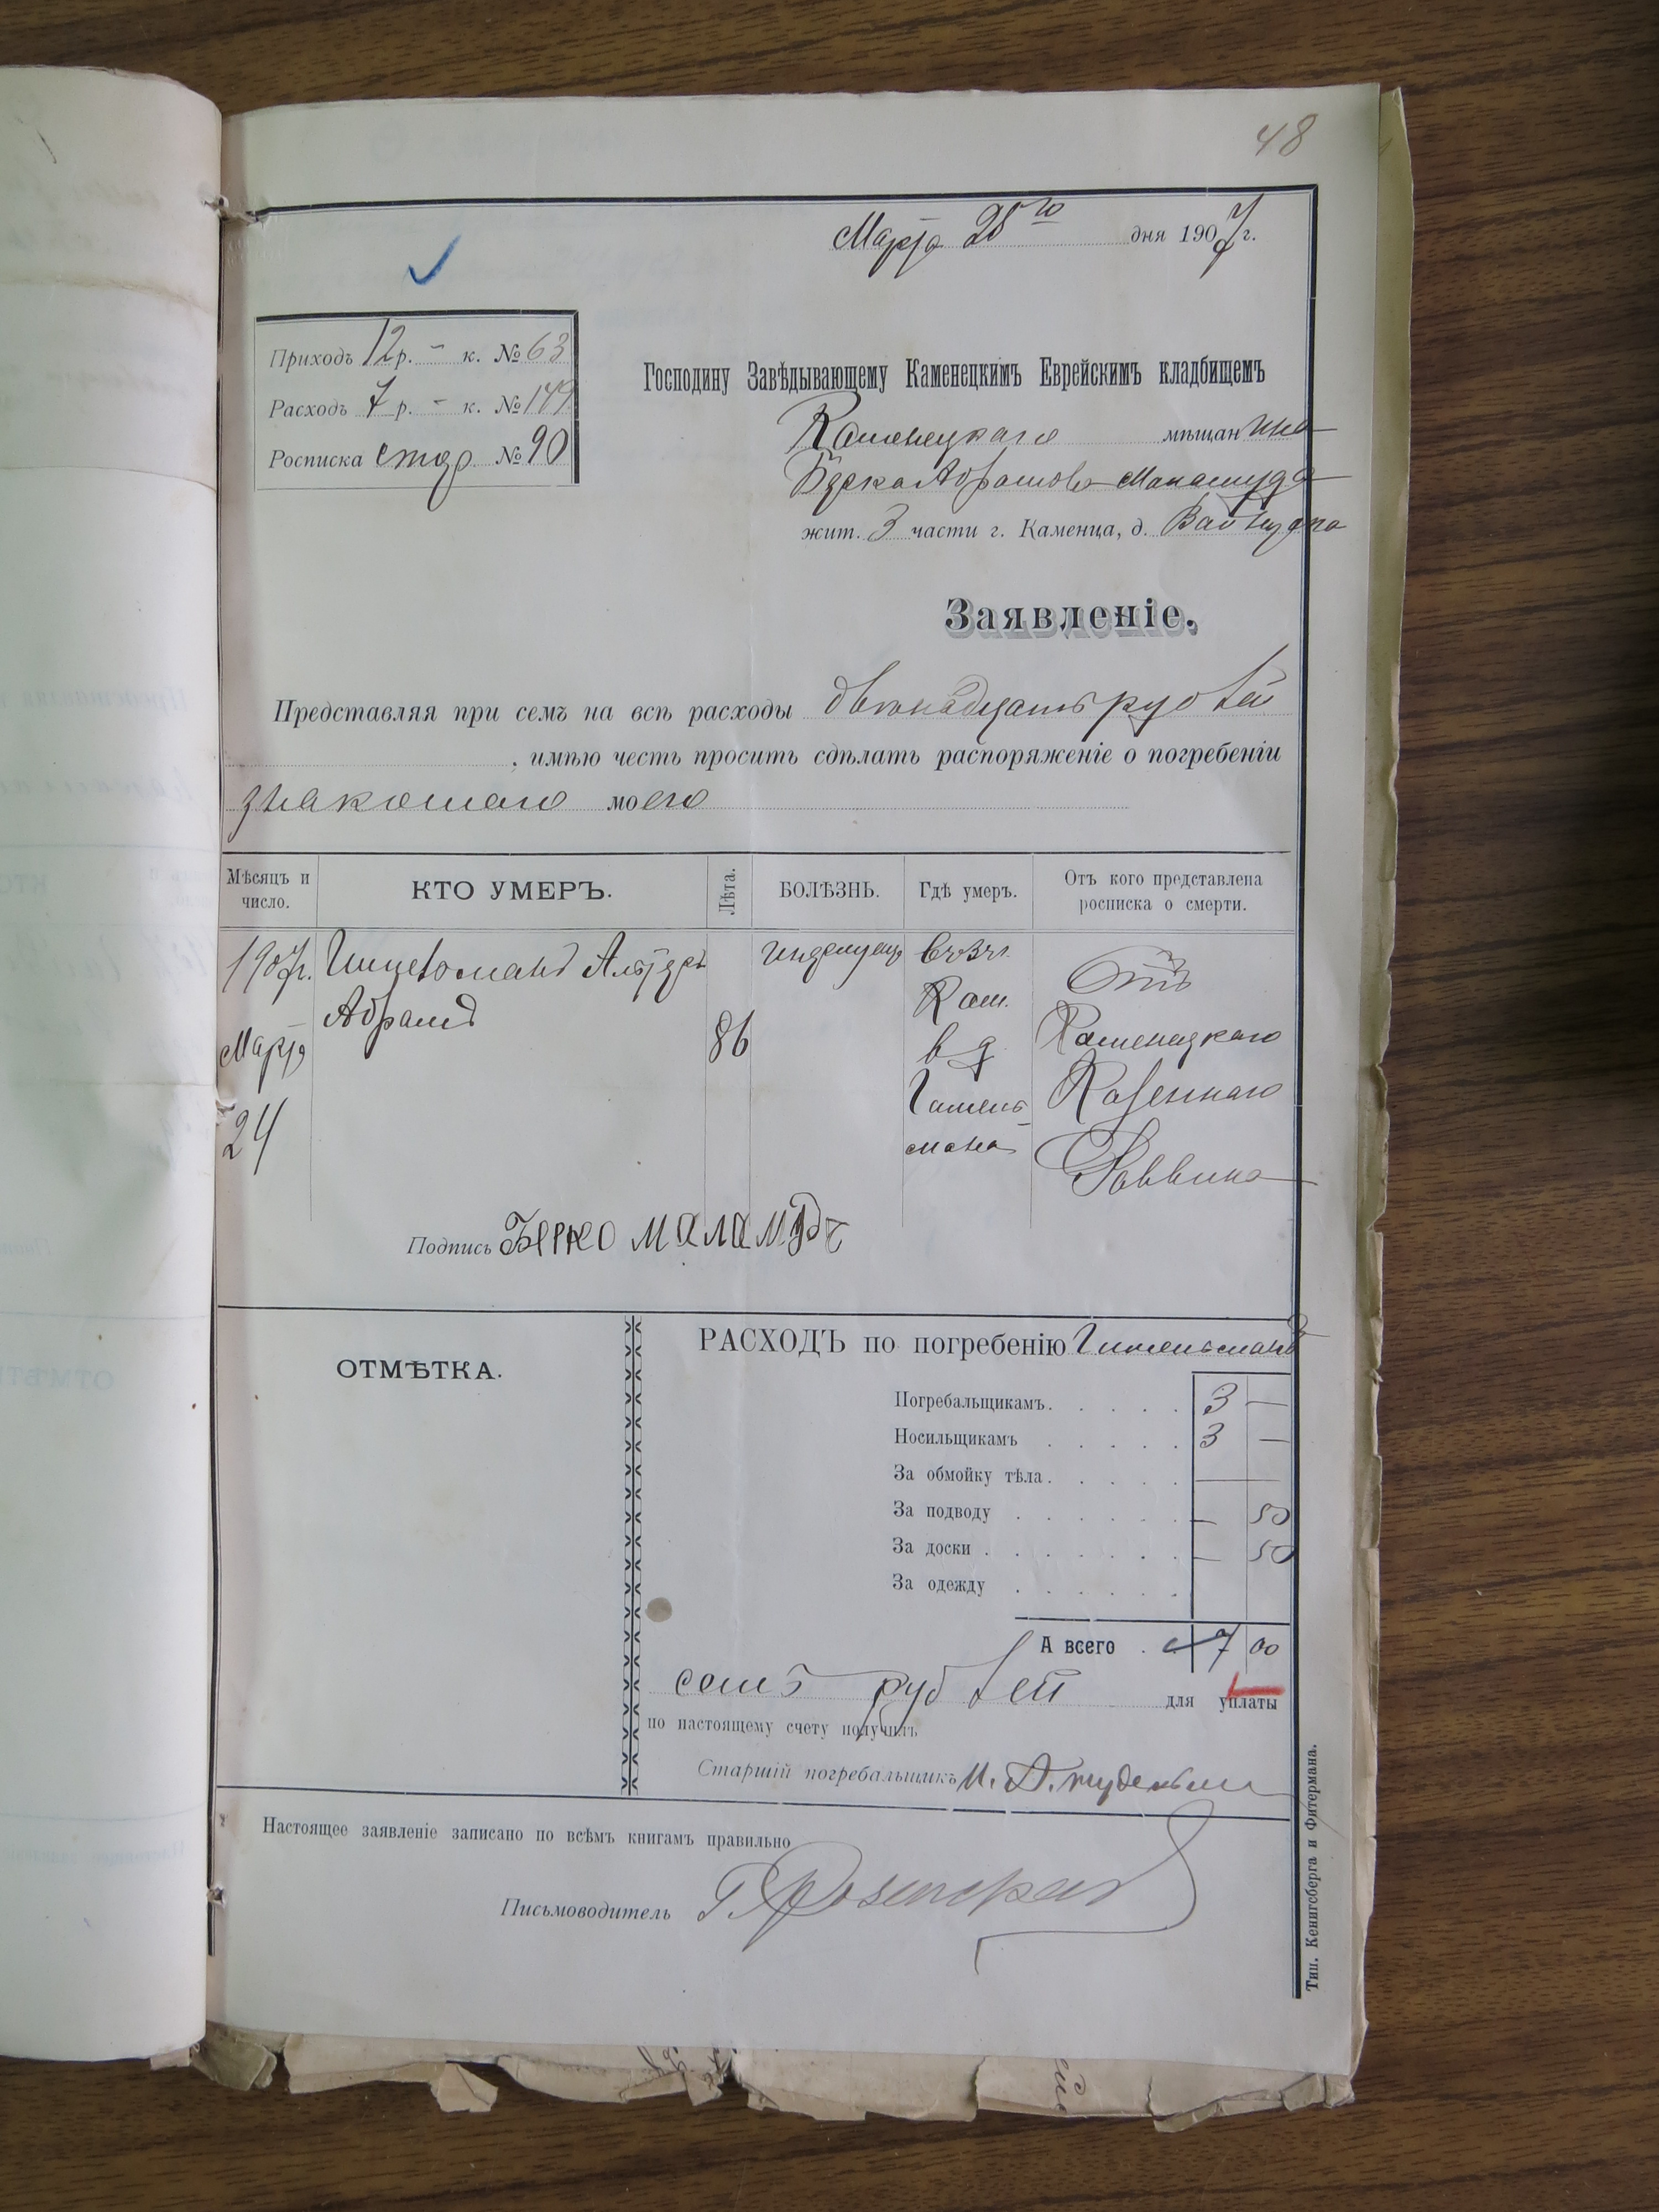 48
Марта 28го дня 1907 г.
Приходъ 12 р. - к. № 63
Расходъ 7 р. - к. № 149
Росписка № 90
Господину Завѣдывающему Каменецкимъ Еврейскимъ кладбищемъ
Каменецкаго мѣщанина
Берка Абрамова Маламуда
жит. 3 части г. Каменца, д.
Заявленіе.
Представляя при семъ на всѣ расходы двѣнадцать рублей
, имѣю честь просить сдѣлать распоряженіе о погребеніи
знакомаго моего
Мѣсяцъ и число. КТО УМЕРЪ. Лѣта. БОЛѢЗНЬ. Гдѣ умеръ. Отъ кого представлена росписка о смерти.
1907г. Альтеръ въ 3 ч. Отъ
Абрамъ Кам. Каменецкаго
Марта 86 в д. Казеннаго
24 Раввина
Подпись Берко маламудъ
ОТМѢТКА.
РАСХОДЪ по погребенію
Погребальщикамъ. 3 —
Носильщикамъ 3 —
За обмойку тѣла. —
За подводу — 50
За доски — 50
За одежду
А всего 7 00
семь рублей для уплаты
по настоящему счету получилъ
Старшій погребальщикъ
Настоящее заявленіе записано по всѣмъ книгамъ правильно
Письмоводитель
Тип. Кенигсберга и Фитермана.